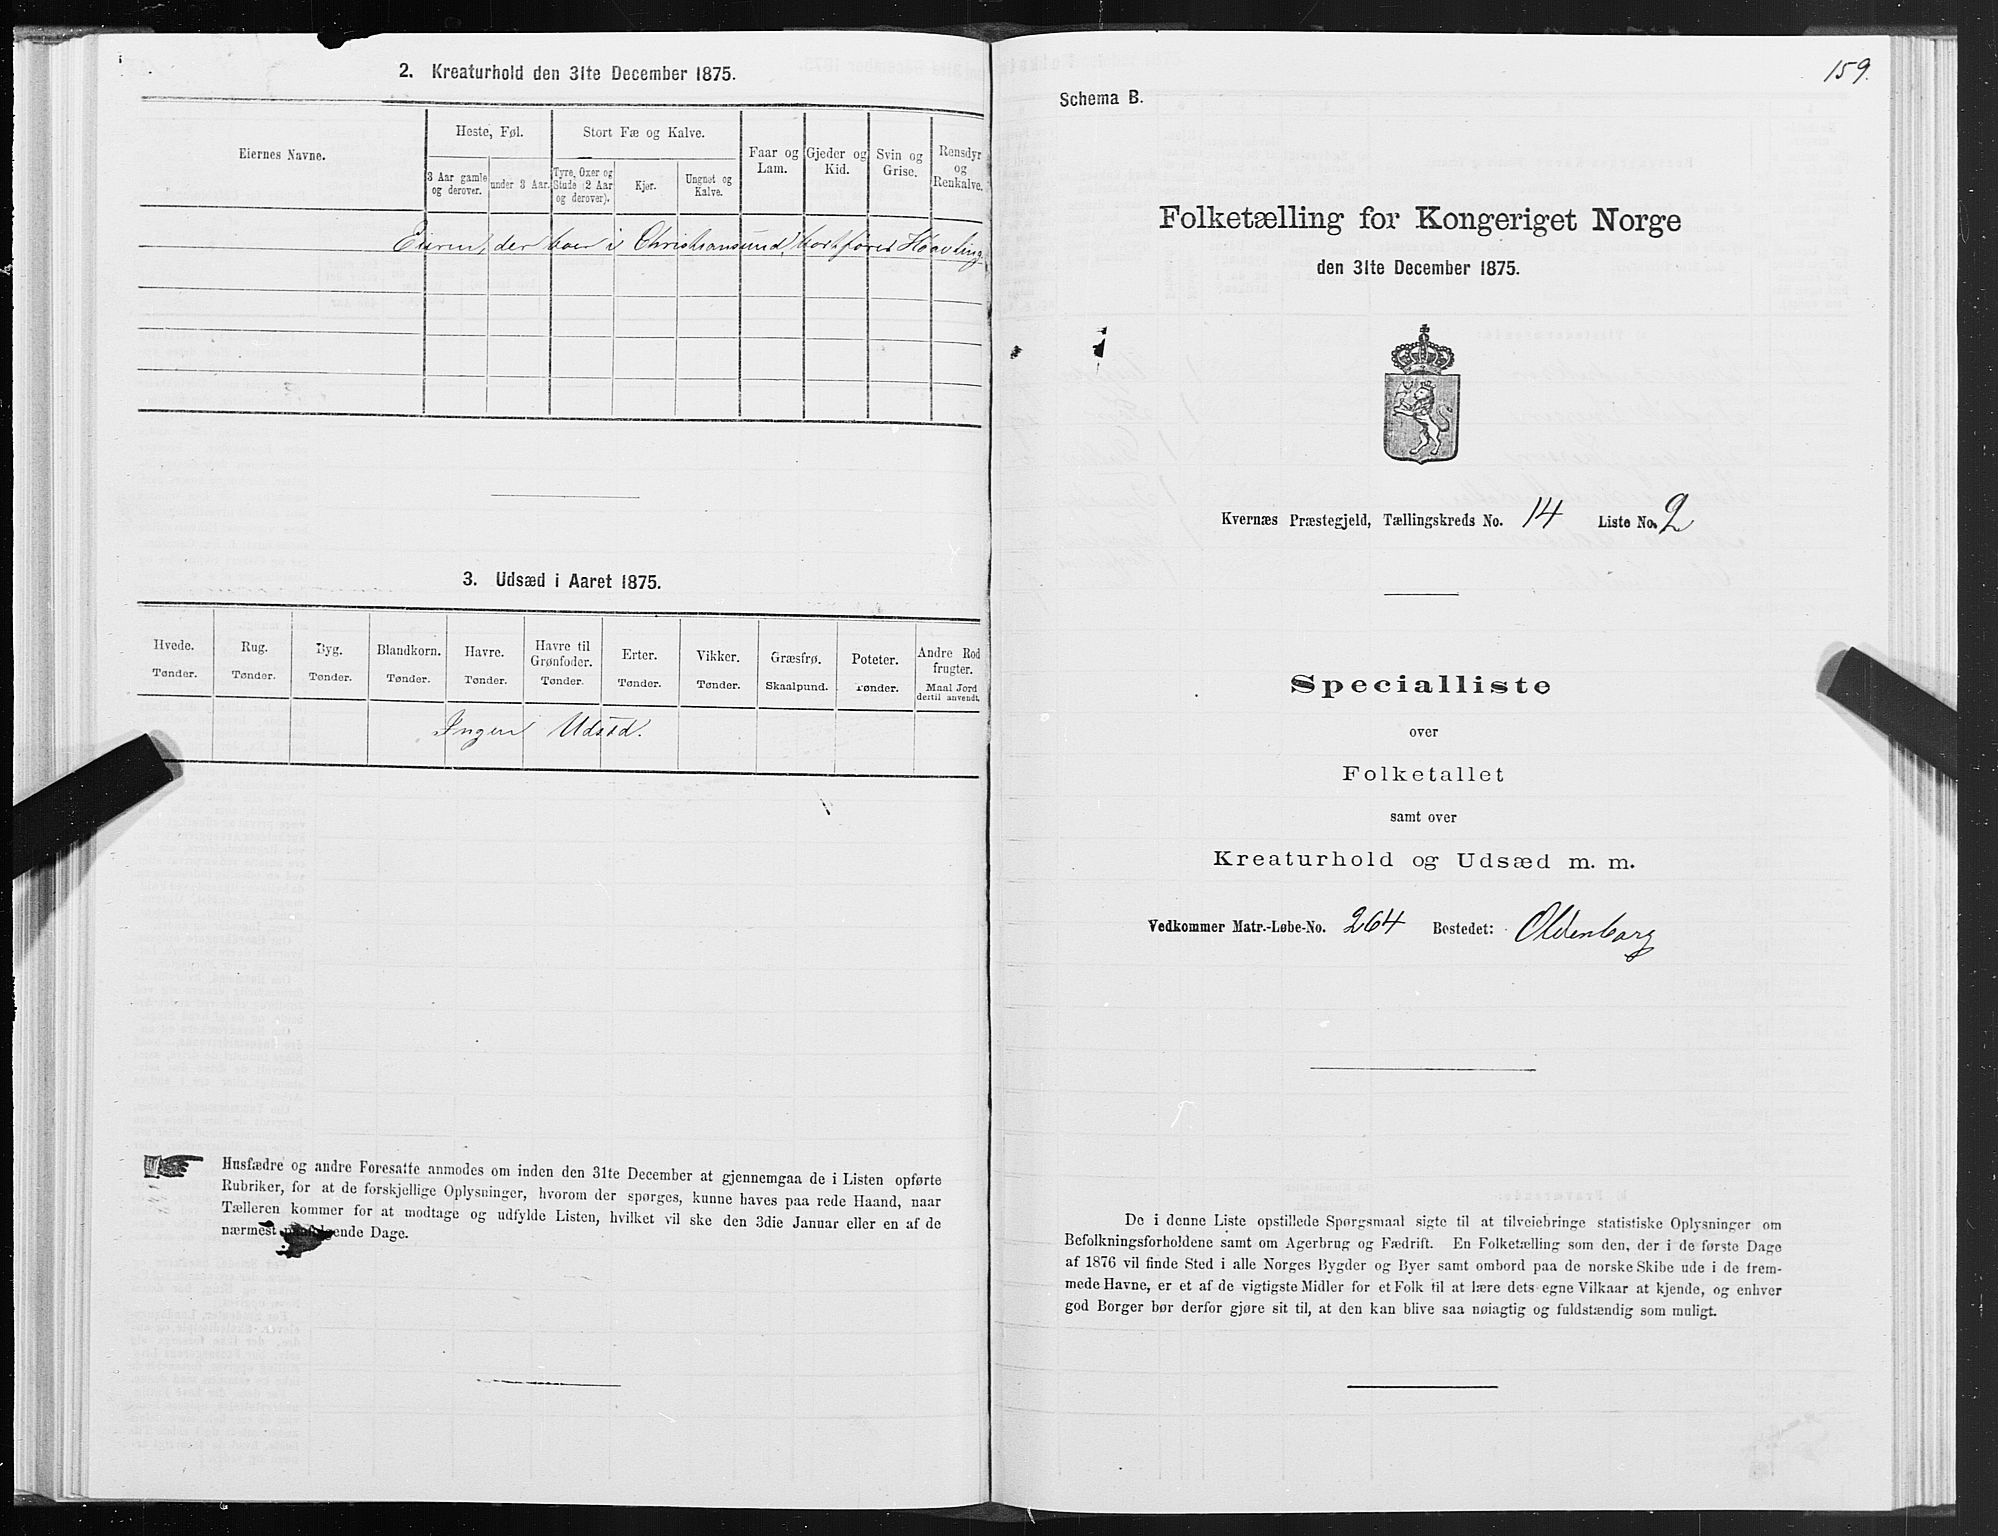 2. Kreaturhold den 31te December 1875.
Eiernes Navne.
Heste, Føl.
Stort Fæ og Kalve.
Faar og
Lam.
Gjeder og
Kid.
Svin og
Grise.
Rensdyr
og
Renkalve.
3 Aar gamle
og derover.
under 3 Aar.
Tyre, Oxer og
Stude (2 Aar
og derover).
Kjør.
Ungnøt og
Kalve.
Eieren, der boer i Christiansund, bortfører Høavling
3. Udsæd i Aaret 1875.
Hvede.
Tønder.
Rug.
Tønder.
Byg.
Tønder.
Blandkorn.
Tønder.
Havre.
Tønder.
Havre til
Grønfoder.
Tønder.
Erter.
Tønder.
Vikker.
Tønder.
Græsfrø.
Skaalpund.
Poteter.
Tønder.
Andre Rod
frugter.
Maal Jord
dertil anvendt.
Ingen Udsæd.
Husfædre og andre Foresatte anmodes om inden den 31te December at gjennemgaa de i Listen opførte
Rubriker, for at de forskjellige Oplysninger, hvorom der spørges, kunne haves paa rede Haand, naar
Tælleren kommer for at modtage og udfylde Listen, hvilket vil ske den 3die Januar eller en af de
nærmest paafølgende Dage.
159.
Schema B.
Folketælling for Kongeriget Norge
den 31te December 1875.
Kvernæs Præstegjeld, Tællingskreds No. 14 Liste No. 2
Specialliste
over
Folketallet
samt over
Kreaturhold og Udsæd m. m.
Vedkommer Matr.-Løbe-No. 264 Bostedet: Oldenborg
De i denne Liste opstillede Spørgsmaal sigte til at tilveiebringe statistiske Oplysninger om
Befolkningsforholdene samt om Agerbrug og Fædrift. En Folketælling som den, der i de første Dage
af 1876 vil finde Sted i alle Norges Bygder og Byer samt ombord paa de norske Skibe ude i de frem-
mede Havne, er et af de vigtigste Midler for et Folk til at lære dets egne Vilkaar at kjende, og enhver
god Borger bør derfor gjøre sit til, at den kan blive saa nøiagtig og fuldstændig som muligt.